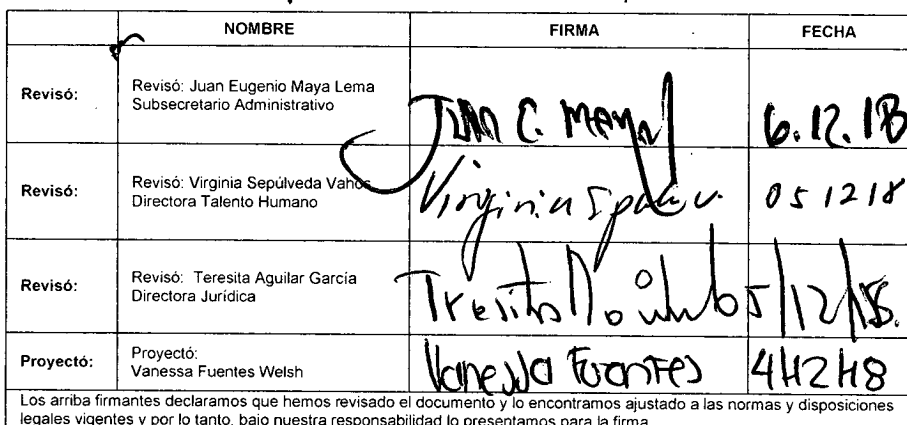 NOMBRE FIRMA FECHA
Revisó: Revisó: Juan Eugenio Maya Lema
Subsecretario Administrativo
Juan C. Maya 6.12.18
Revisó: Revisó: Virginia Sepúlveda Vahos
Directora Talento Humano
Virginia 05 12 18
Revisó: Revisó: Teresita Aguilar García
Directora Jurídica
Tresita 5/12/18.
Proyectó: Proyectó:
Vanessa Fuentes Welsh
Vanessa Fuentes 4-12-18
Los arriba firmantes declaramos que hemos revisado el documento y lo encontramos ajustado a las normas y disposiciones
legales vigentes y por lo tanto, bajo nuestra responsabilidad lo presentamos para la firma.